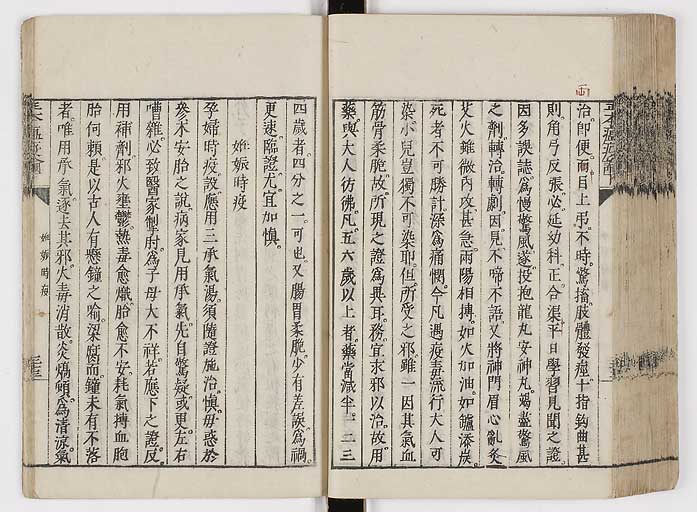 治即便兩目上弔不時驚搐肢體發痙十指鉤曲甚
則角弓反張必延幼科正合渠平日學習見聞之證
因多誤誌為慢驚風遂投抱龍丸安神丸竭盡驚風
之劑轉治轉劇因見不啼不語又將神門眉心亂灸
艾火雖微內攻甚急兩陽相搏如火加油如鑪添炭
死者不可勝計深為痛憫今凡遇疫毒流行大人可
染小兒豈獨不可染耶但所受之邪雖一因其氣血
筋骨柔脆故所現之證為異耳務宜求邪以治故用
藥與大人彷彿凡五六歲以上者藥當減半二三
四歲者四分之一可也又腸胃柔脆少有差誤為禍
更速臨證尤宜加慎
姙娠時疫
孕婦時疫設應用三承氣湯須隨證施治慎毋惑於
參朮安胎之說病家見用承氣先自驚疑或更左右
嘈雜必致醫家掣肘為子母大不祥若應下之證反
用補劑邪火壅鬱熱毒愈熾胎愈不安耗氣搏血胞
胎何賴是以古人有懸鐘之喻梁腐而鐘未有不落
者唯用承氣逐去其邪火毒消散炎熇頓為清涼氣
姙娠時疫